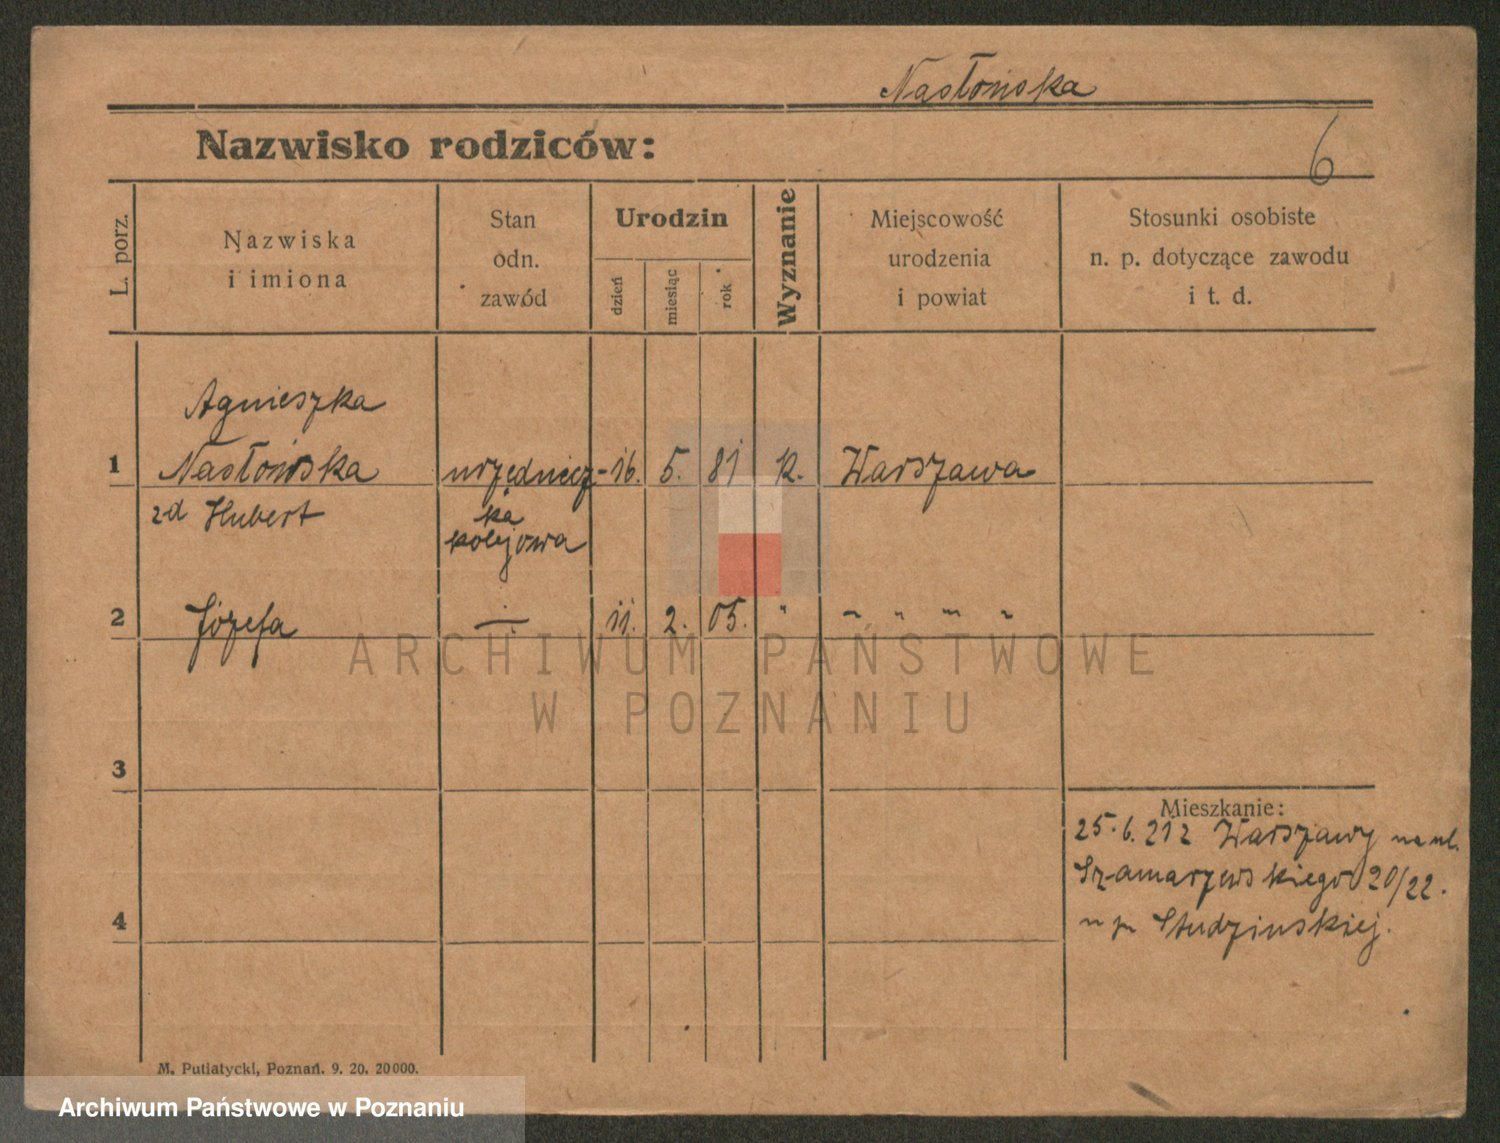 Nasłońska
Nazwisko rodziców:
6
L. porz.
Nazwiska
i imiona
Stan
odn.
zawód
Urodzin
dzień
miesiąc
rok
Wyznanie
Miejscowość
urodzenia
i powiat
Stosunki osobiste
n. p. dotyczące zawodu
i t. d.
Agnieszka
1 Nasłońska urzędnicz- 16. 5. 81 k. Warszawa
zd Hubert
ka
kolejowa
2 Józefa 11. 2. 05. " " " " "
ARCHIWUM PAŃSTWOWE
W POZNANIU
3
Mieszkanie:
25.6.21 z Warszawy na ul.
Szamarzewskiego 20/22.
u p. Studzinskiej.
4
M. Putiatycki, Poznań. 9. 20. 20000.
Archiwum Państwowe w Poznaniu